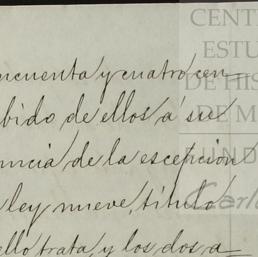 ncuenta y cuatro cen=
bido de ellos a' su
uncia de la escepcion
ley nueve, titulo
ello trata, y los dos a=
CENT
ESTU
DE HIS
DE M
FUND
Carlo